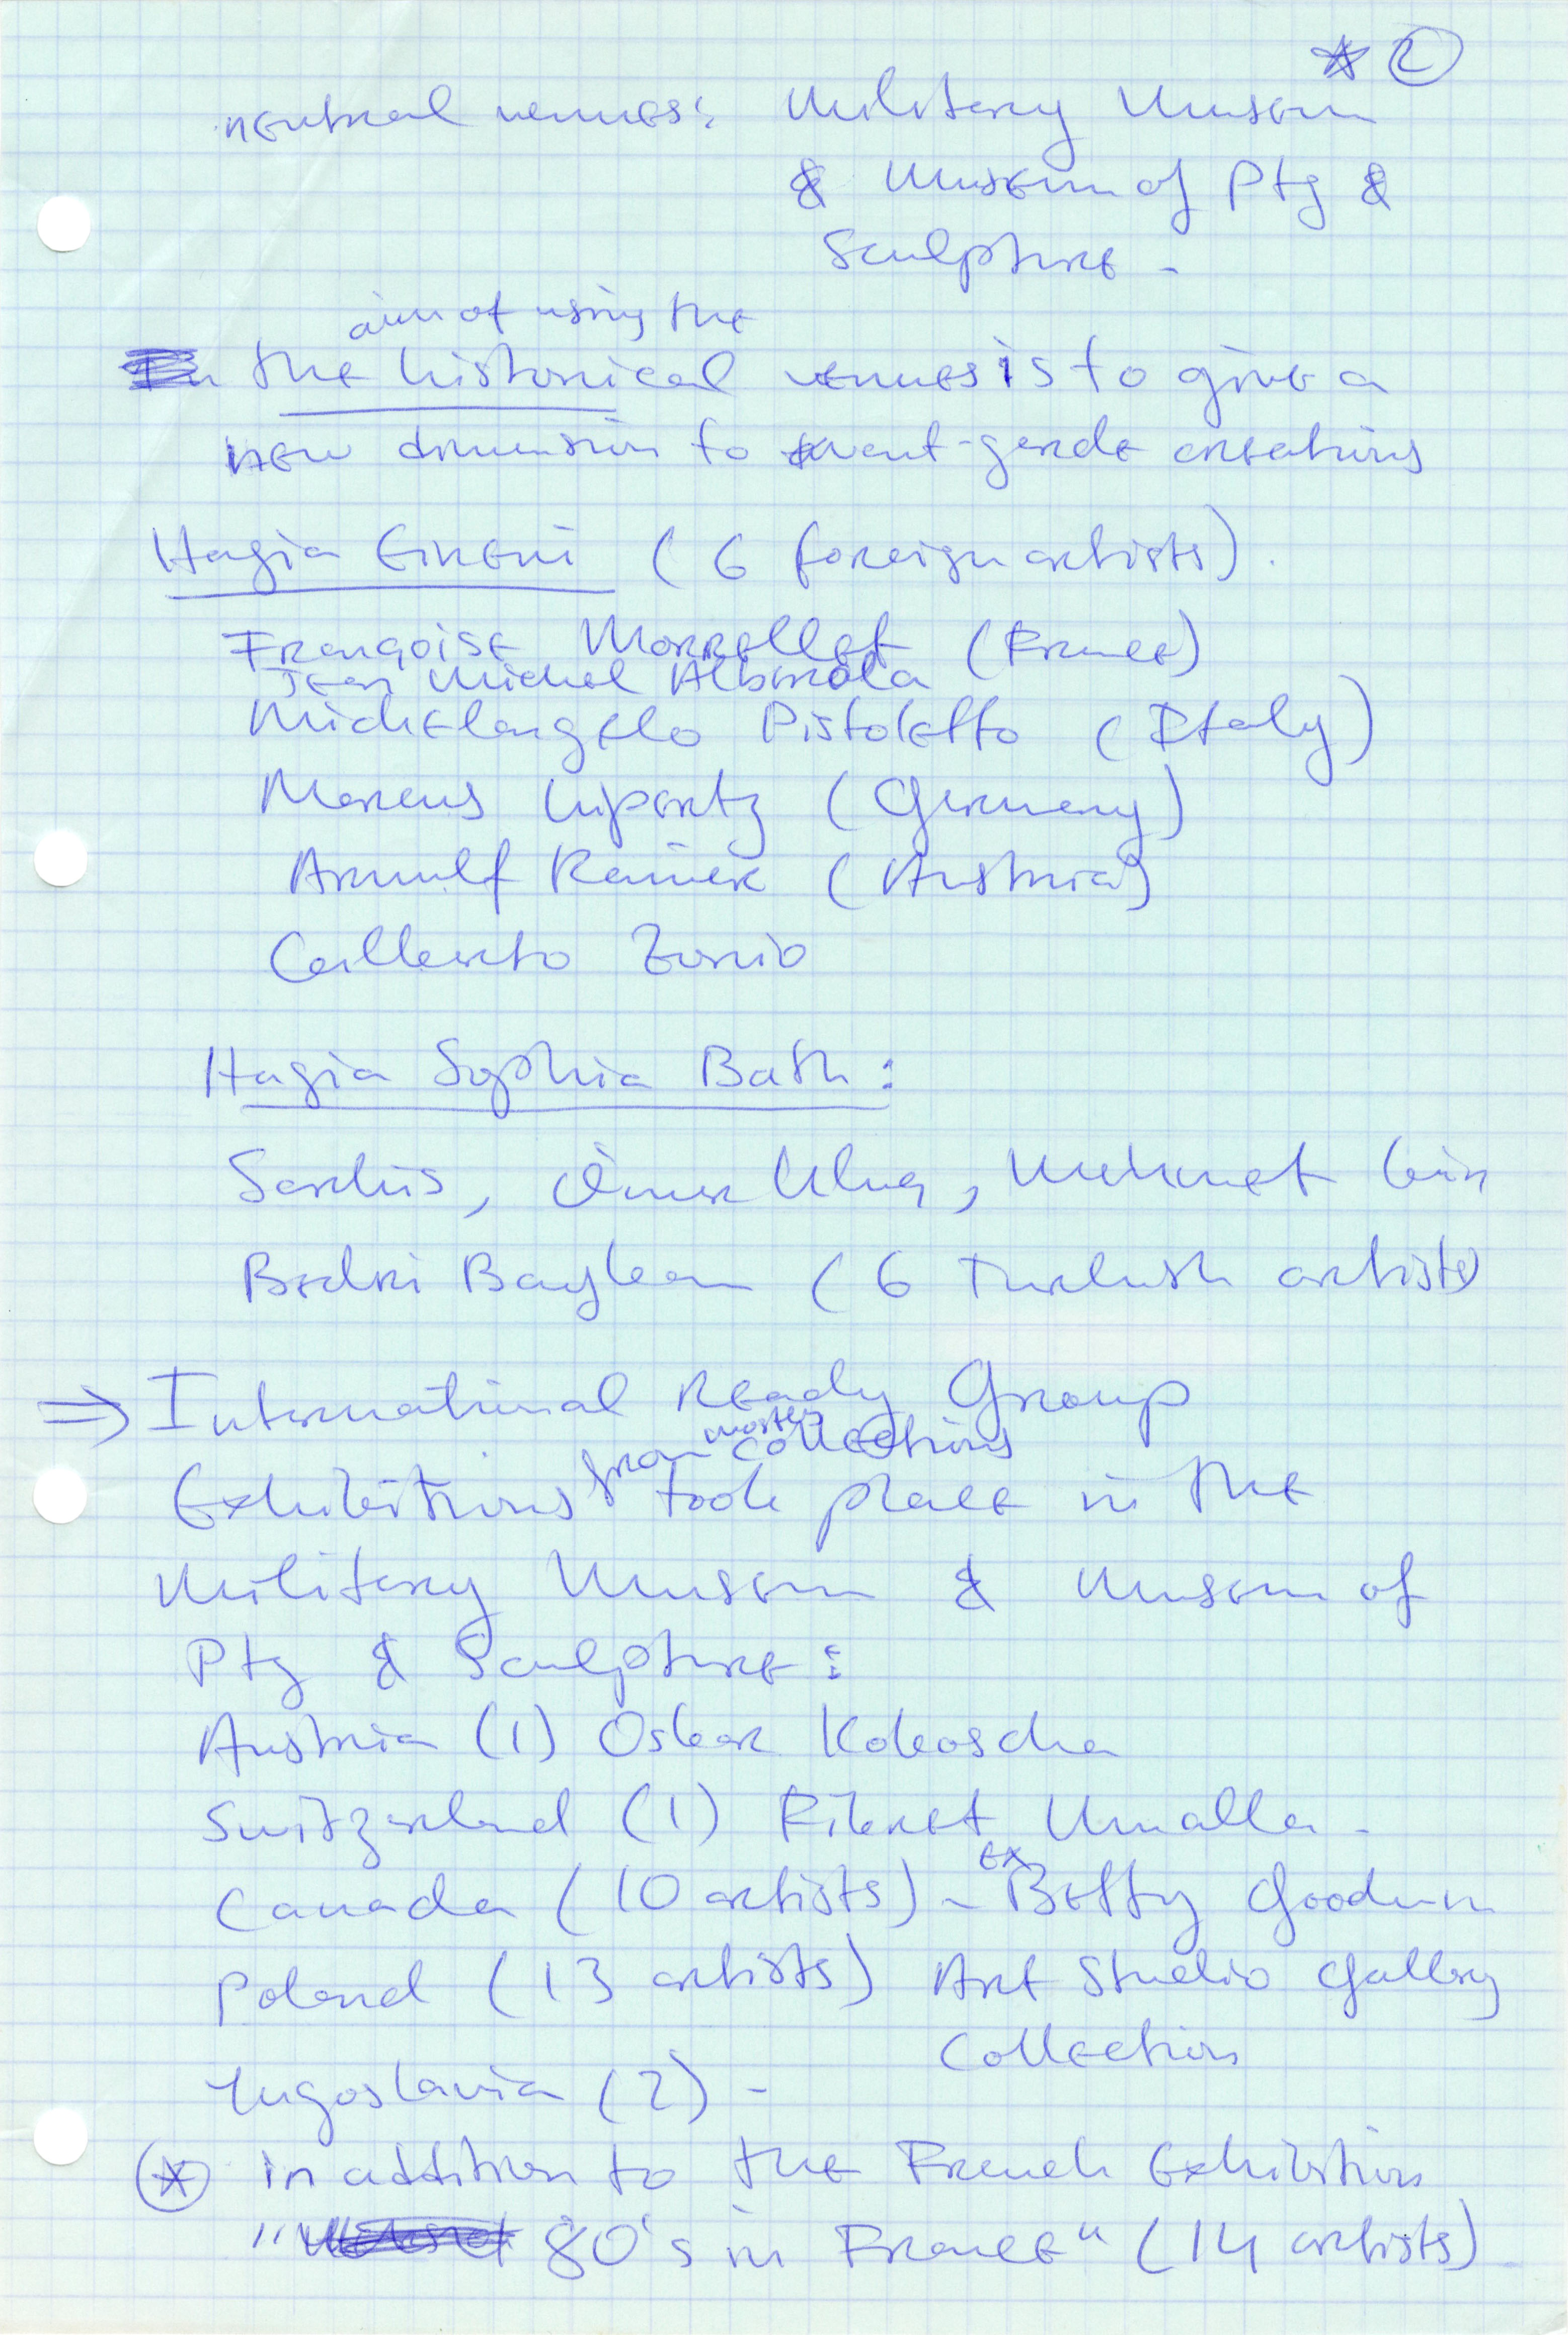 * 2
neutral venues: Military Museum
& Museum of Ptg &
Sculpture -
aim of using the
the historical venues is to give a
new dimension to avant-garde creations
Hagia Eireni (6 foreign artists).
Françoise Morrellet (France)
Jean Michel Alberola
Michelangelo Pistoletto (Italy)
Marcus Lupertz (Germany)
Arnulf Rainer (Austria)
Gilberto Zorio
Hagia Sophia Bath:
Sarkis, Ömer Uluç, Mehmet Gün
Bedri Baykam (6 Turkish artists)
⇒ International Ready Group
from mostly collections
Exhibitions took place in the
Military Museum & Museum of
Ptg & Sculpture:
Austria (1) Oskar Kokoscha
Switzerland (1) Fikret Mualla -
Canada (10 artists) - ex Betty Goodwin
Poland (13 artists) Art Studio Gallery
Collection
Yugoslavia (2) -
* in addition to the French Exhibition
" 80's in France" (14 artists).